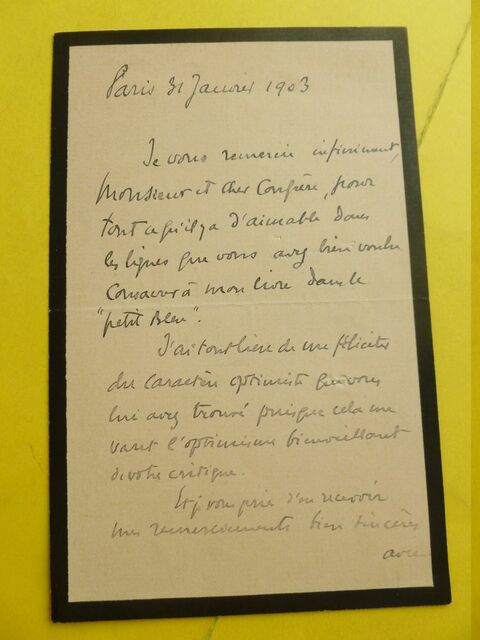 Paris 31 Janvier 1903
Je vous remercie infiniment,
Monsieur et cher Confrère, pour
tout ce qu'il y a d'aimable dans
les lignes que vous avez bien voulu
consacrer à mon livre dans le
"petit Bleu".
J'ai tout lieu de me féliciter
du caractère optimiste que vous
lui avez trouvé puisque cela me
vaut l'optimisme bienveillant
de votre critique.
Et je vous prie d'en recevoir
mes remerciements bien sincères
avec